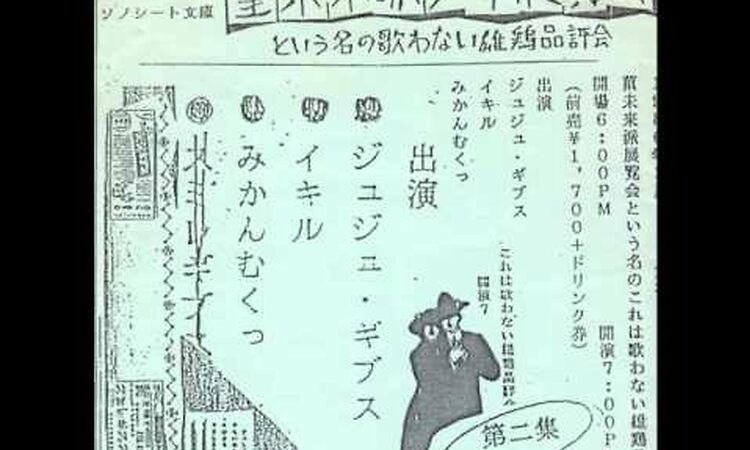 ソノシート文庫
という名の歌わない雄鶏品評会
前未来派展覧会という名のこれは歌わない雄鶏
開場6:00PM
開演7:00P
(前売¥1,700+ドリンク券)
出演
ジュジュ・ギブス
イキル
みかんむくっ
出演
ジュジュ・ギブス
イキル
みかんむくっ
これは歌わない雄鶏品評会
開演7
第二集